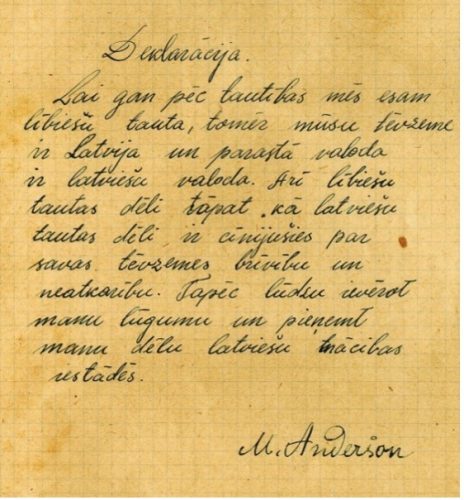 Deklarācija.
Lai gan pēc tautības mēs esam
lībiešu tauta, tomēr mūsu tēvzeme
ir Latvija un parastā valoda
ir latviešu valoda. Arī lībiešu
tautas dēli tāpat kā latviešu
tautas dēli, ir cīnijušies par
savas tēvzemes brīvību un
neatkarību. Tāpēc lūdzu ievērot
manu lūgumu un pieņemt
manu dēlu latviešu mācības
iestādēs.
M. Anderšon